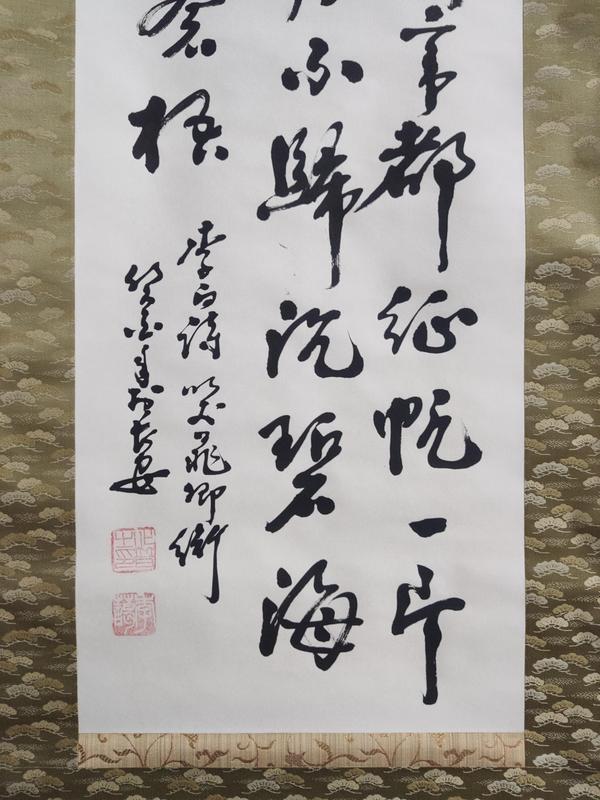 帝都征帆一片
不歸沉碧海
蒼梧
李白詩哭晁卿衡
於長安